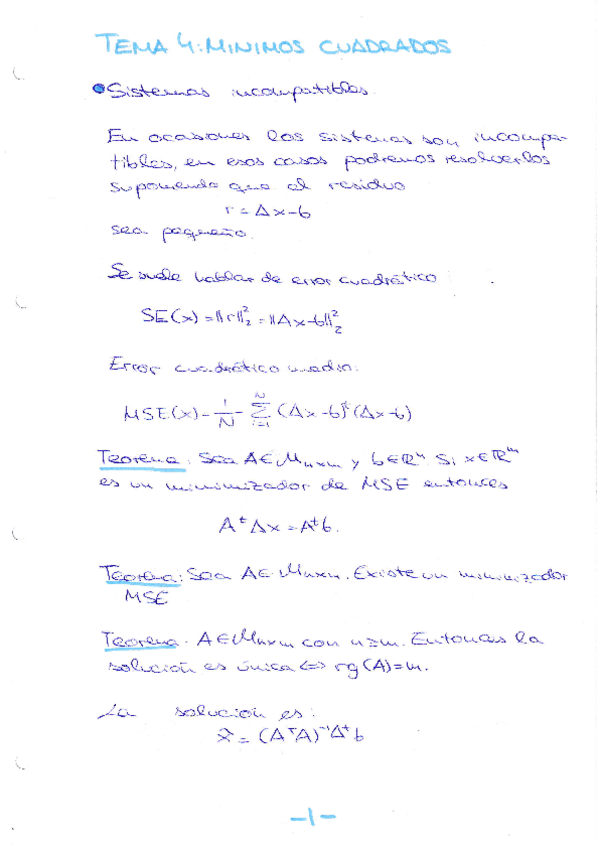 TEMA 4: MINIMOS CUADRADOS
Sistemas incompatibles
En ocasiones los sistemas son incompa-
tibles, en esos casos podremos resolverlos
suponiendo que el residuo
r = Ax-b
sea pequeño.
Se suele hablar de error cuadrático
SE(x) = ||r||²₂ = ||Ax-b||²₂
Error cuadrático medio:
MSE(x) = 1/N Σ_{i=1}^{N} (Ax-b)ᵗ(Ax-b)
Teorema: Sea A∈M_{nxm} y b∈ℝⁿ. Si x∈ℝᵐ
es un minimizador de MSE entonces
AᵗAx = Aᵗb.
Teorema: Sea A∈M_{nxm}. Existe un minimizador
MSE
Teorema. A∈M_{nxm} con n≥m. Entonces la
solución es única ⇔ rg(A)=m.
La solución es:
x̂ = (AᵗA)⁻¹Aᵗb
-1-